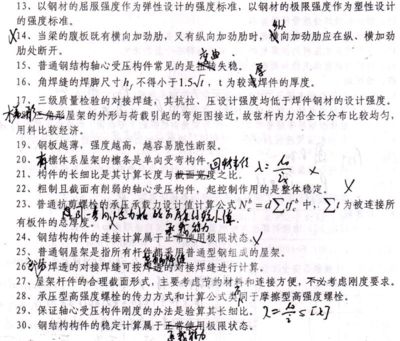 13、以钢材的屈服强度作为弹性设计的强度标准，以钢材的极限强度作为塑性设计
的强度标准。
纵
14、当梁的腹板既有横向加劲肋，又有纵向加劲肋时，横向加劲肋应在纵、横加劲
肋处断开。
弯曲
15、普通钢结构轴心受压构件常见的是扭转失稳。
厚
16、角焊缝的焊脚尺寸hf不得小于1.5√t，t为较薄焊件的厚度。
17、三级质量检验的对接焊缝，其抗拉、压设计强度均低于焊件钢材的设计强度。
梯形
18、三角形屋架的外形与荷载引起的弯矩图接近，故弦杆内力沿全长分布比较均匀，
用料比较经济。
19、钢板越薄，强度越高，越容易脆性断裂。
20、有檩体系屋架的檩条是单向受弯构件。
回转半径 λ=
21、构件的长细比是其计算长度与截面宽度之比。
22、粗制且截面有削弱的轴心受压构件，起控制作用的是整体稳定。
23、普通抗剪螺栓的承压承载力设计值计算公式 中，∑t为被连接所
有板件的总厚度。
承载能力
24、钢结构构件的连接计算属于正常使用极限状态。
25、普通钢屋架是指所有杆件都采用普通型钢组成的屋架。
26、的对接焊缝可按的对接焊缝进行计算。
27、屋架杆件的合理截面形式，主要考虑节约材料和连接方便，不必考虑刚度要求。
28、承压型高强度螺栓的传力方式和计算公式同于摩擦型高强度螺栓。
29、保证轴心受压构件刚度的办法是验算其长细比。
30、钢结构构件的稳定计算属于正常使用极限状态。
承载能力